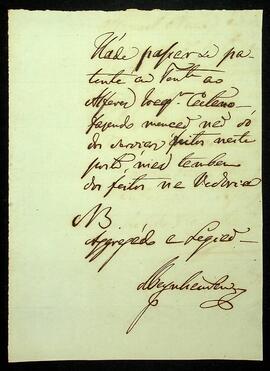 Háde passar se pa-
tente de Tente ao
Alferes Joaqm. Caetano
fazendo menção não só
dos serviços feitos neste
posto, mas tambem
dos feitos na
NB
Aggregado a Legião